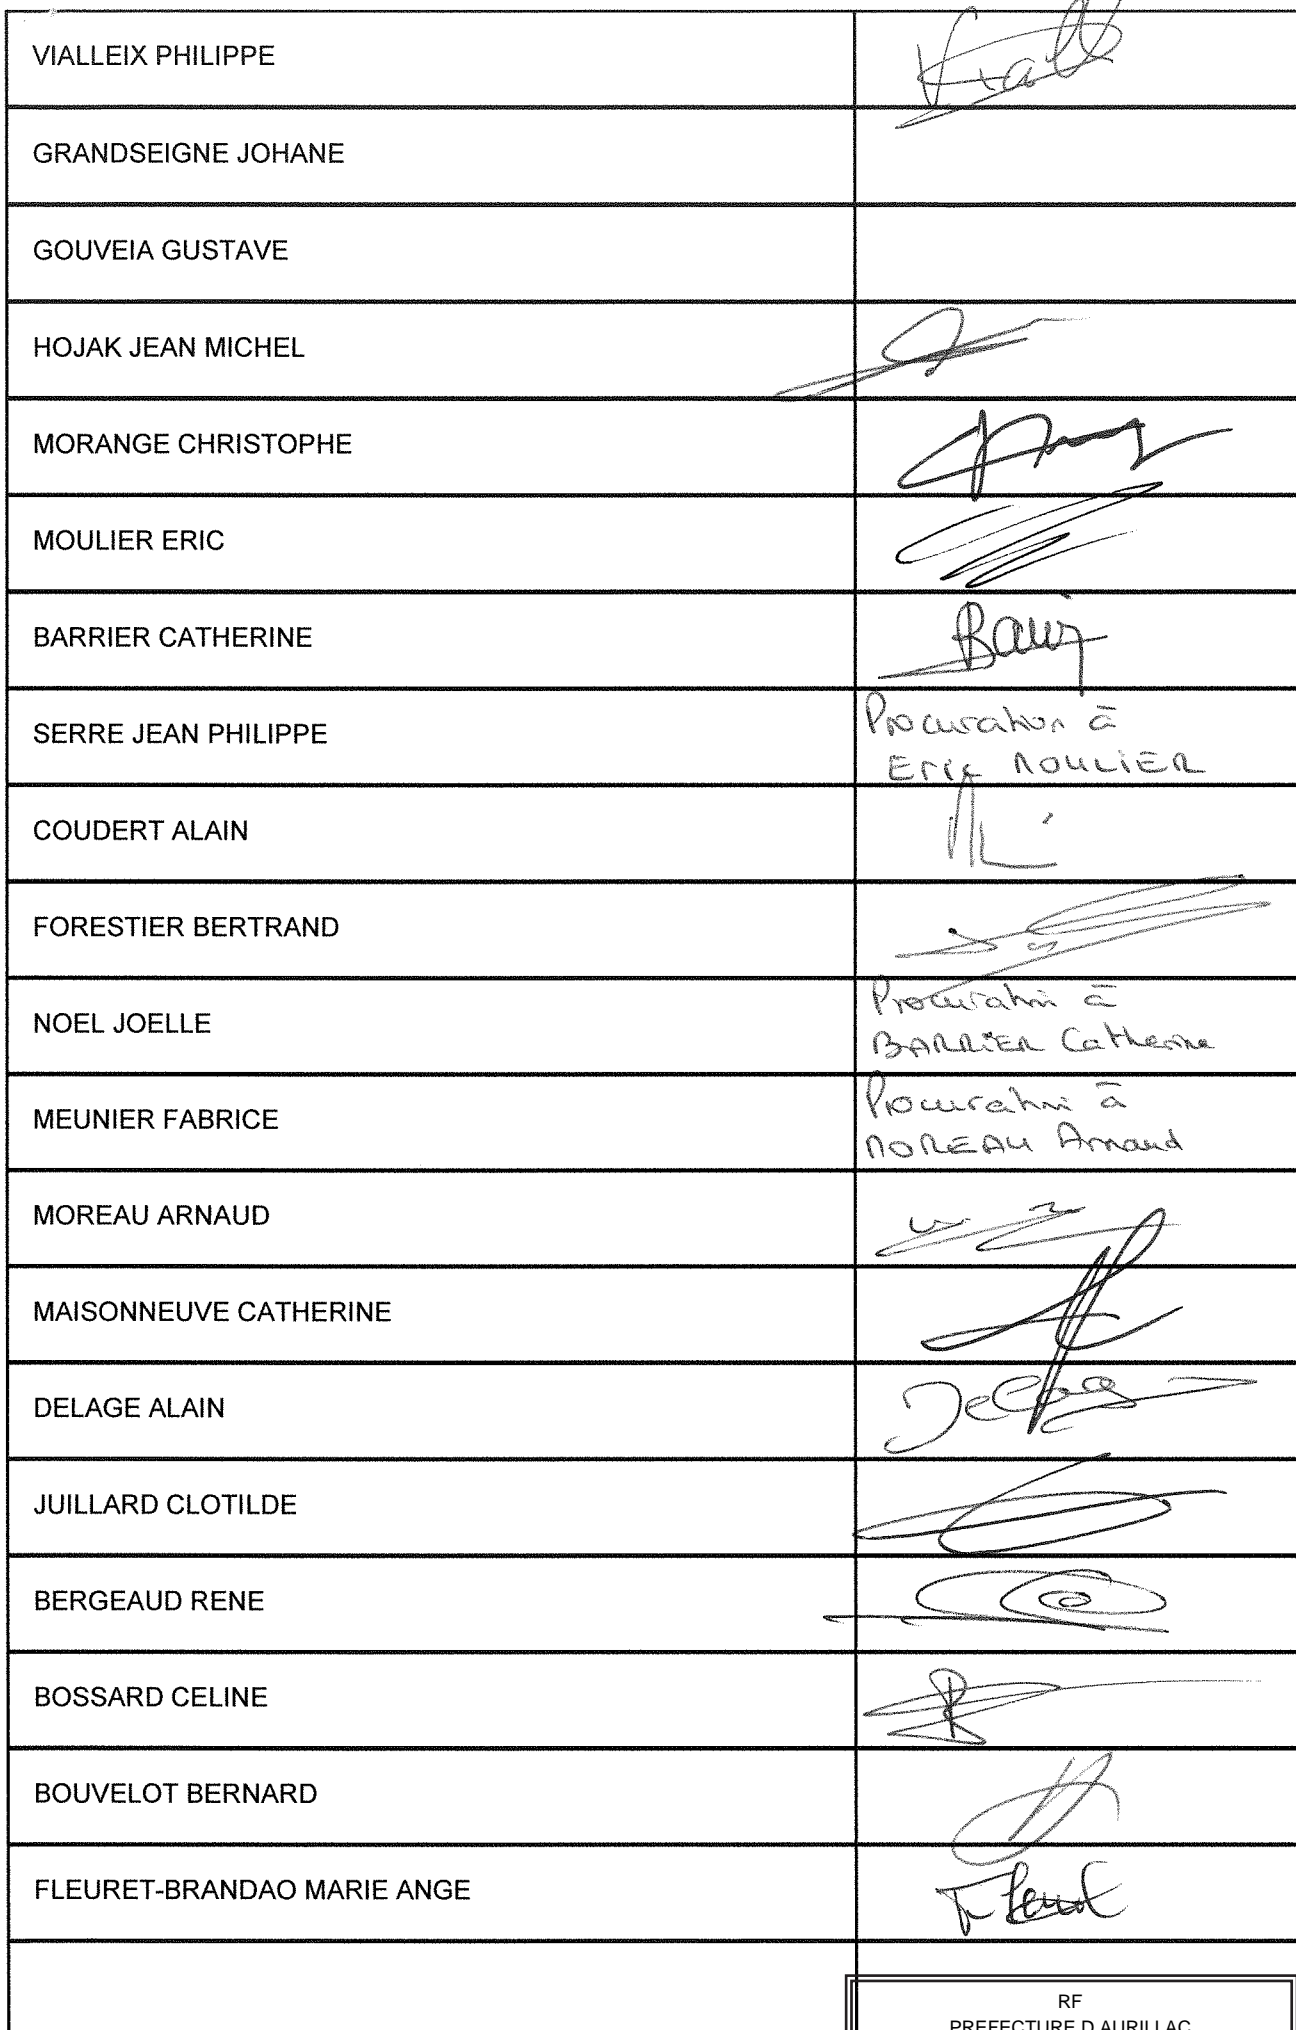 VIALLEIX PHILIPPE
GRANDSEIGNE JOHANE
GOUVEIA GUSTAVE
HOJAK JEAN MICHEL
MORANGE CHRISTOPHE
MOULIER ERIC
BARRIER CATHERINE
SERRE JEAN PHILIPPE
Procuration à
Eric MOULIER
COUDERT ALAIN
FORESTIER BERTRAND
NOEL JOELLE
Procuration à
BARRIER Catherine
MEUNIER FABRICE
Procuration à
MOREAU Arnaud
MOREAU ARNAUD
MAISONNEUVE CATHERINE
DELAGE ALAIN
JUILLARD CLOTILDE
BERGEAUD RENE
BOSSARD CELINE
BOUVELOT BERNARD
FLEURET-BRANDAO MARIE ANGE
RF
PREFECTURE D AURILLAC